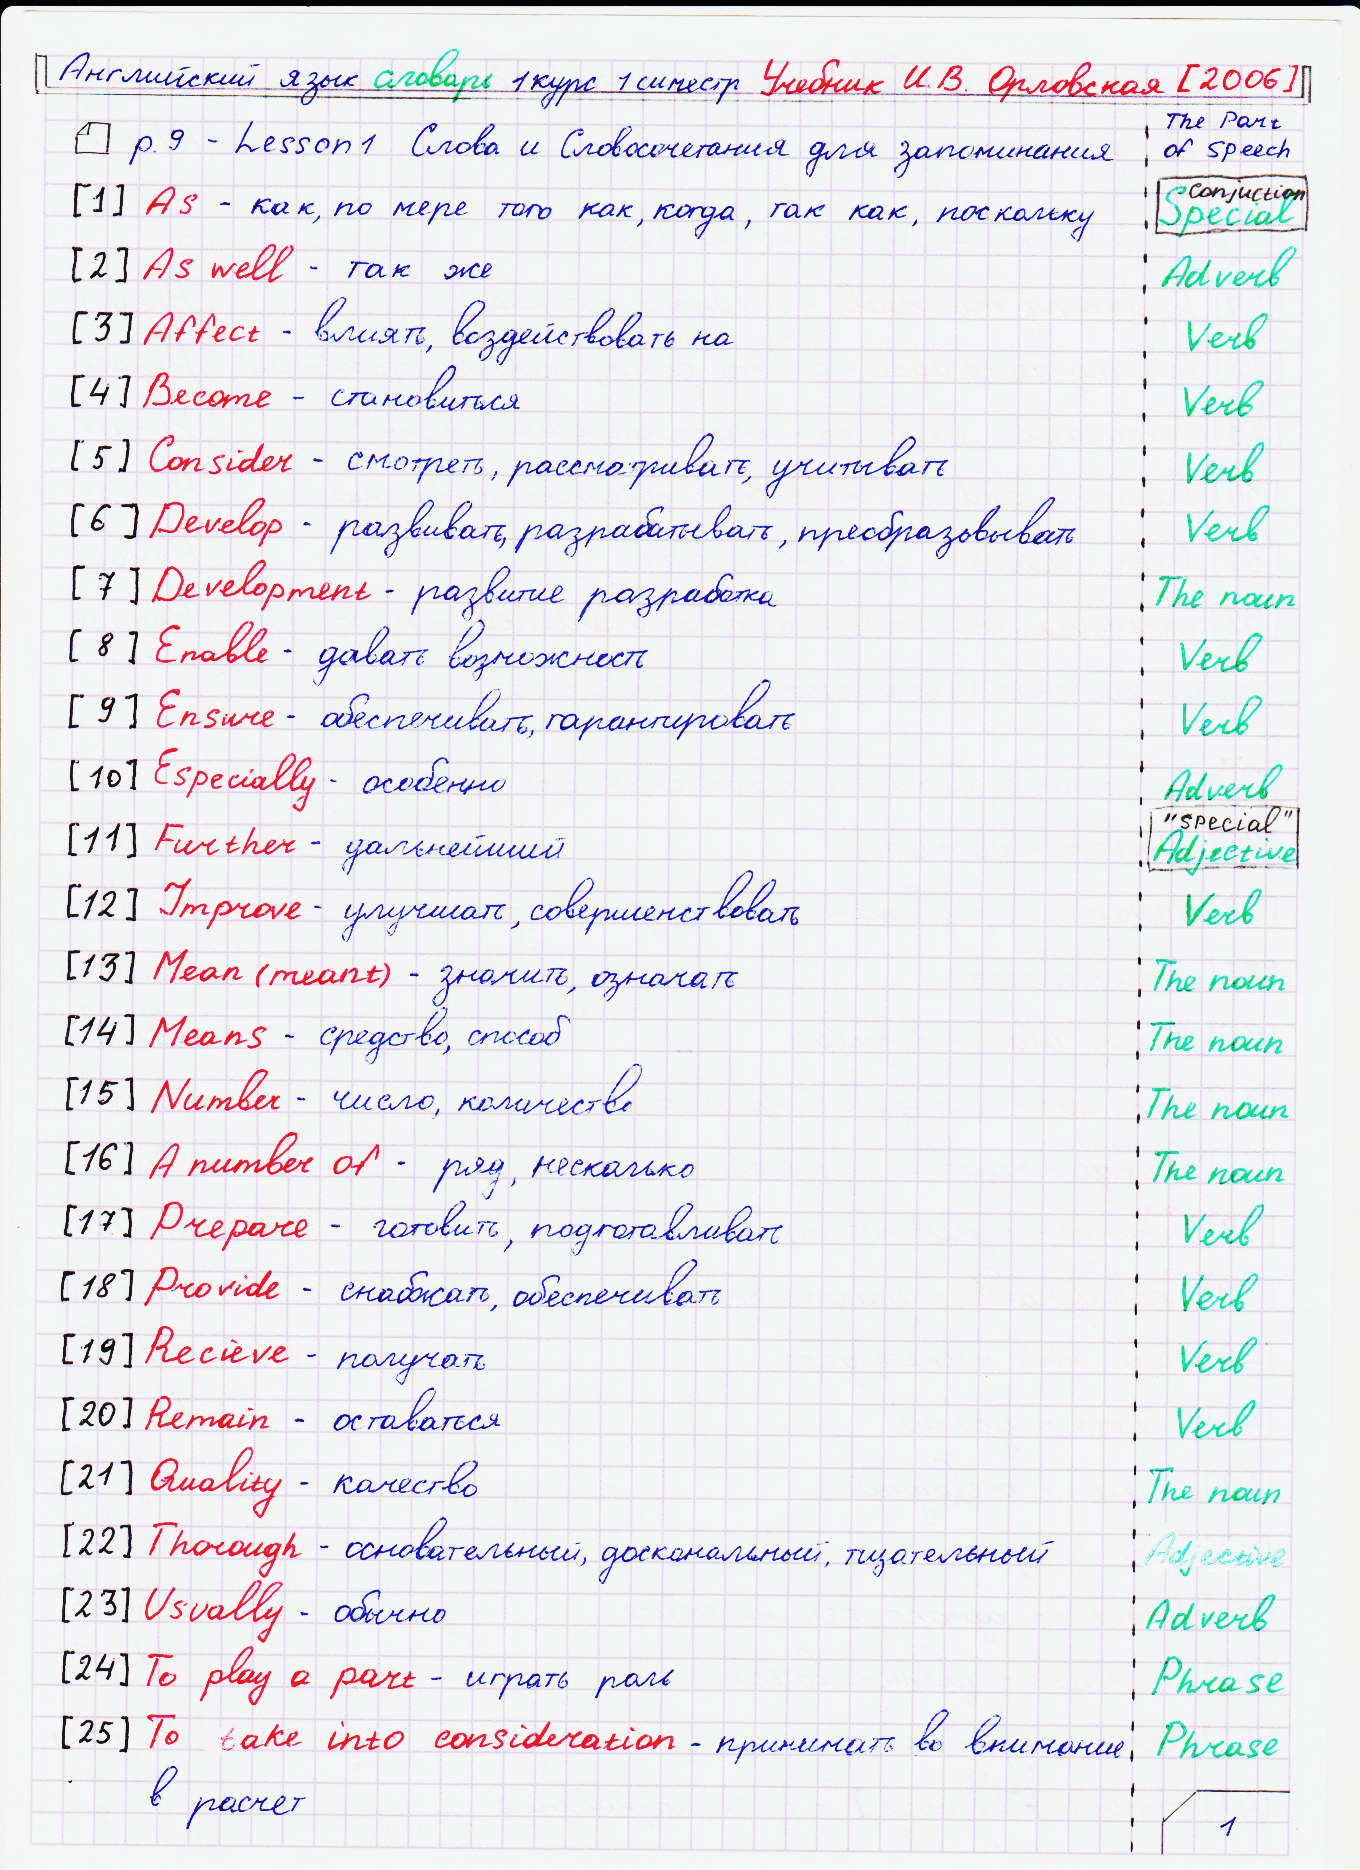 Английский язык словарь 1 курс 1 симестр Учебник И.В. Орловская [2006]
p.9 - Lesson 1 Слова и Словосочетания для запоминания The Part of speech
[1] As - как, по мере того как, когда, так как, поскольку Conjuction Special
[2] As well - так же Adverb
[3] Affect - влиять, воздействовать на Verb
[4] Become - становиться Verb
[5] Consider - смотреть, рассматривать, учитывать Verb
[6] Develop - развивать, разрабатывать, преобразовывать Verb
[7] Development - развитие разработка The noun
[8] Enable - давать возможность Verb
[9] Ensure - обеспечивать, гарантировать Verb
[10] Especially - особенно Adverb
[11] Further - дальнейший "special" Adjective
[12] Improve - улучшать, совершенствовать Verb
[13] Mean (meant) - значить, означать The noun
[14] Means - средство, способ The noun
[15] Number - число, количество The noun
[16] A number of - ряд, несколько The noun
[17] Prepare - готовить, подготавливать Verb
[18] Provide - снабжать, обеспечивать Verb
[19] Recieve - получать Verb
[20] Remain - оставаться Verb
[21] Quality - качество The noun
[22] Thorough - основательный, доскональный, тщательный Adjective
[23] Usually - обычно Adverb
[24] To play a part - играть роль Phrase
[25] To take into consideration - принимать во внимание, Phrase
в расчет
1